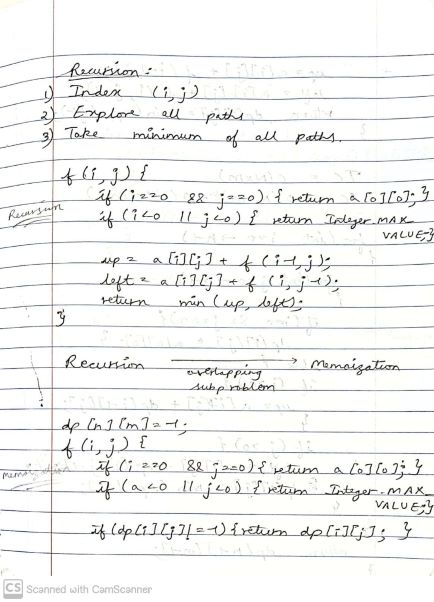 Recursion :
1) Index (i, j)
2) Explore all paths
3) Take minimum of all paths.
f (i, j) {
if (i==0 && j==0) { return a[0][0]; }
Recursion
if (i<0 || j<0) { return Integer.MAX_
VALUE;}
up = a[i][j] + f (i-1, j);
left = a[i][j] + f (i, j-1);
return min (up, left);
}
Recursion → Memoization
overlapping
subproblem
dp [n][m] = -1;
f (i, j) {
if (i==0 && j==0) { return a[0][0]; }
Memoization
if (a<0 || j<0) { return Integer.MAX_
VALUE;}
if (dp[i][j] != -1) { return dp[i][j]; }
CS Scanned with CamScanner